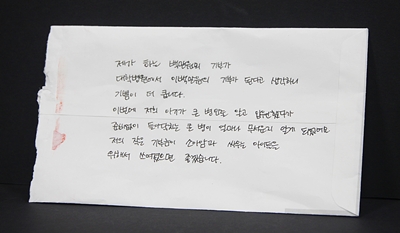 제가 하는 백만원의 기부가
대학병원에서 이백만원의 기부가 된다고 생각하니
기쁨이 더 큽니다.
이번에 저희 아기가 큰 병은 앓고
갑자기 들이닥치는 큰 병이 얼마나 무서운지 알게 되었어요
저의 작은 기부금이 소아암과 싸우는 아이들을
위해서 쓰여졌으면 좋겠습니다.